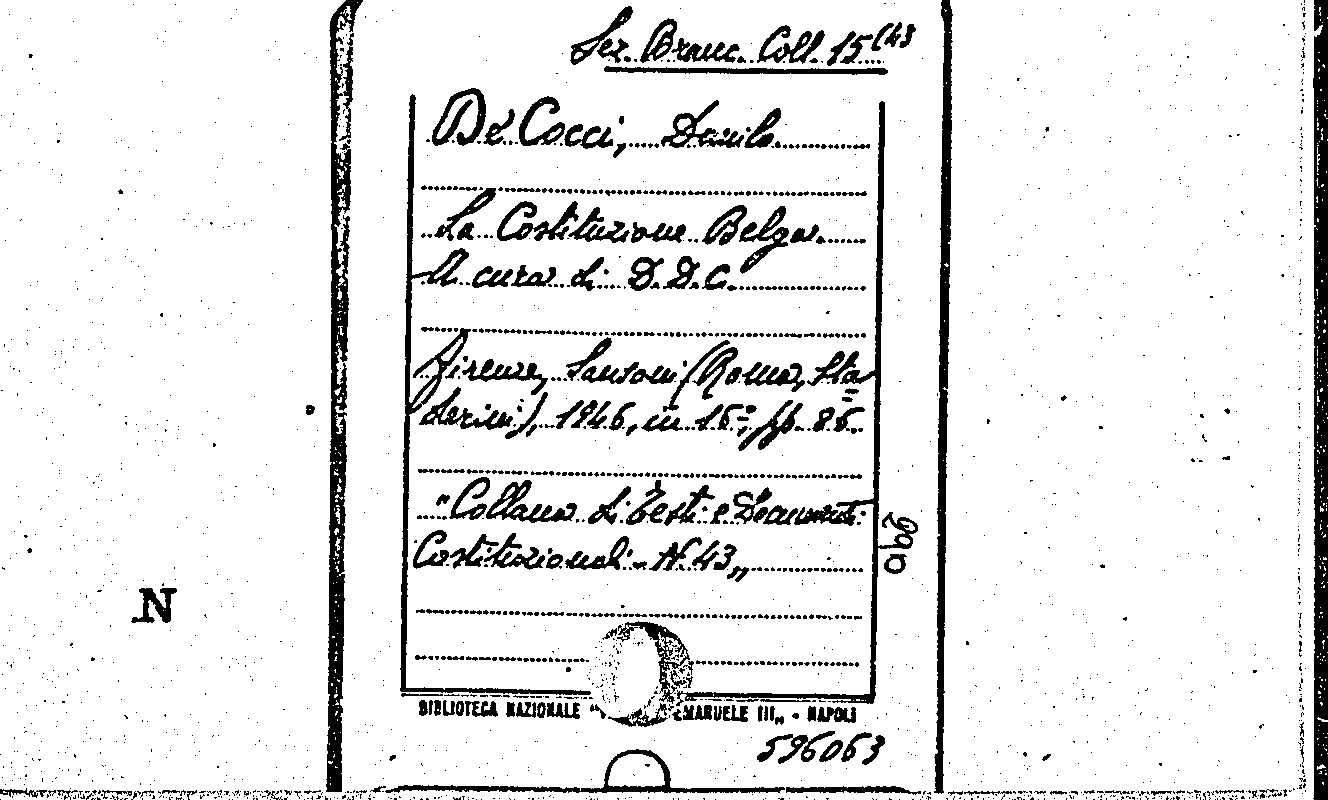 Sez. Branc. Coll. 15 (43
De' Cocci, Danilo.
La Costituzione Belga.
A cura di D.D.C.
Firenze, Sansoni (Roma, Sta=
derini), 1946, in 16°, pp. 86.
"Collana di Testi e Documenti
Costituzionali - N. 43„
BIBLIOTECA NAZIONALE " EMANUELE III„ - NAPOLI
596063
N